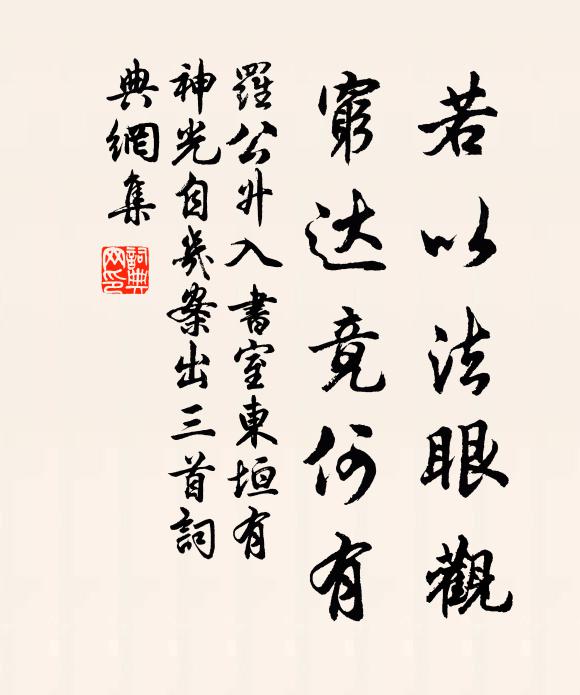 若以法眼觀
窮达竟何有
羅公升入書室東垣有
神光自幾案出三首詞
典網集
詞典
网印